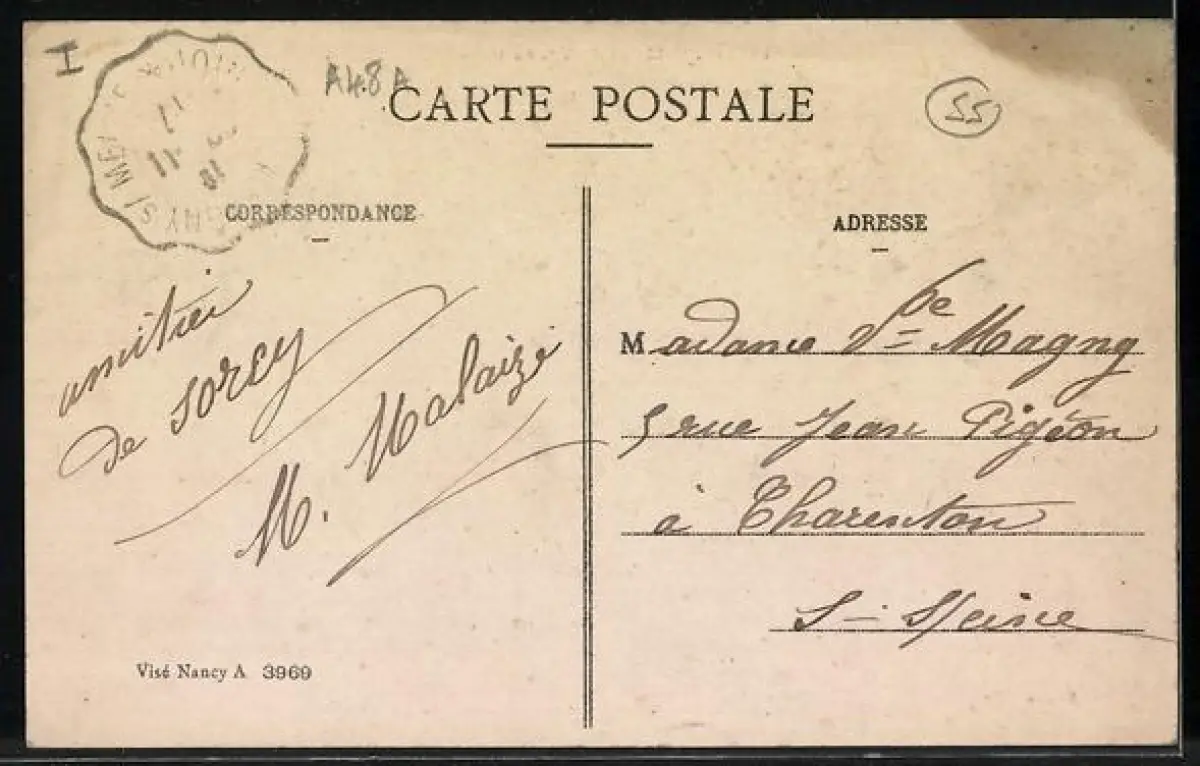 I
A48A
CARTE POSTALE
55
CORRESPONDANCE
amitiés
de Sorcy
M. Malaizé
Visé Nancy A 3969
ADRESSE
Madame Vve Magny
5 rue Jean Pigéon
à Charenton
S- Seine